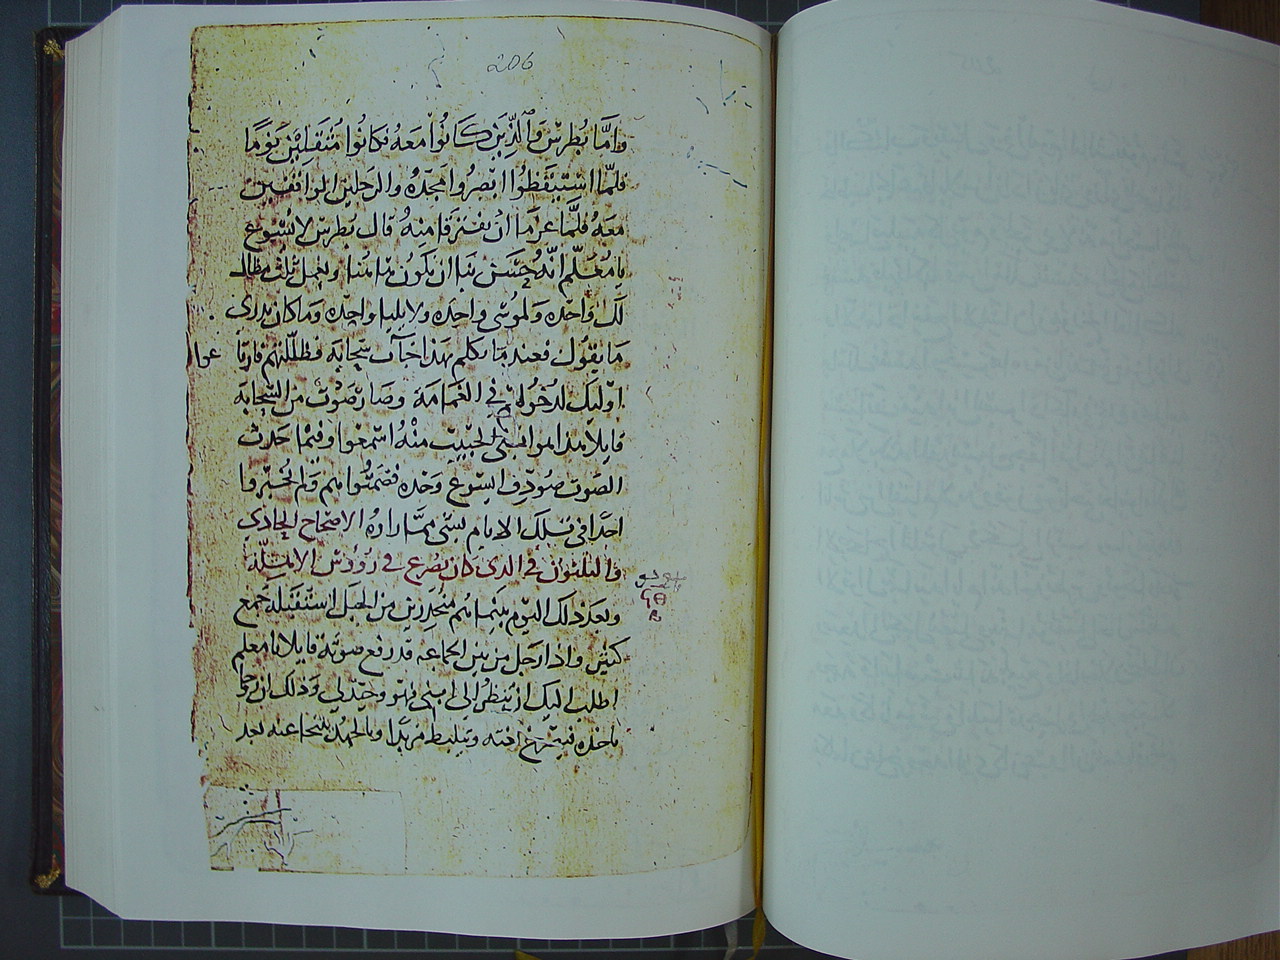 206
واما بطرس والذين كانوا معه فكانوا متقلين نوما
فلما استيقظوا ابصروا مجده والرجلين الواقفين
معه فلما عزما ان يفترقا منه قال بطرس لايسوع
يا معلم انه حسن بنا ان نكون ها هنا ونعمل ثلث مظال
لك واحده ولموسى واحده ولايليا واحده وما كان يدرى
ما يقول فعندما تكلم بهذا جات سحابه فظللتهم فارقا
اوليك لدخولهم في الغمامة وصار صوت من السحابه
قايلا هذا هو ابنى الحبيب منه اسمعوا وفيما حدث
الصوت صودف ايسوع وحده فصمتوا هم ولم يخبروا
احدا في تلك الايام بشى مما راوه الاصحاح الحادي
والثلثون في الذى كان يصرع في رووس الاهلة
وبعد ذلك اليوم بينما هم منحدرين من الجبل استقبله جمع
كثير واذا رجل من بين الجماعه قد رفع صوته قايلا يا معلم
اطلب اليك ان تنظر الي ابنى فهو وحيد لي وذلك ان روحا
ياخذه فيصرخ بغته ويلبط مزبدا وبالجهد يتنحا عنه بعد